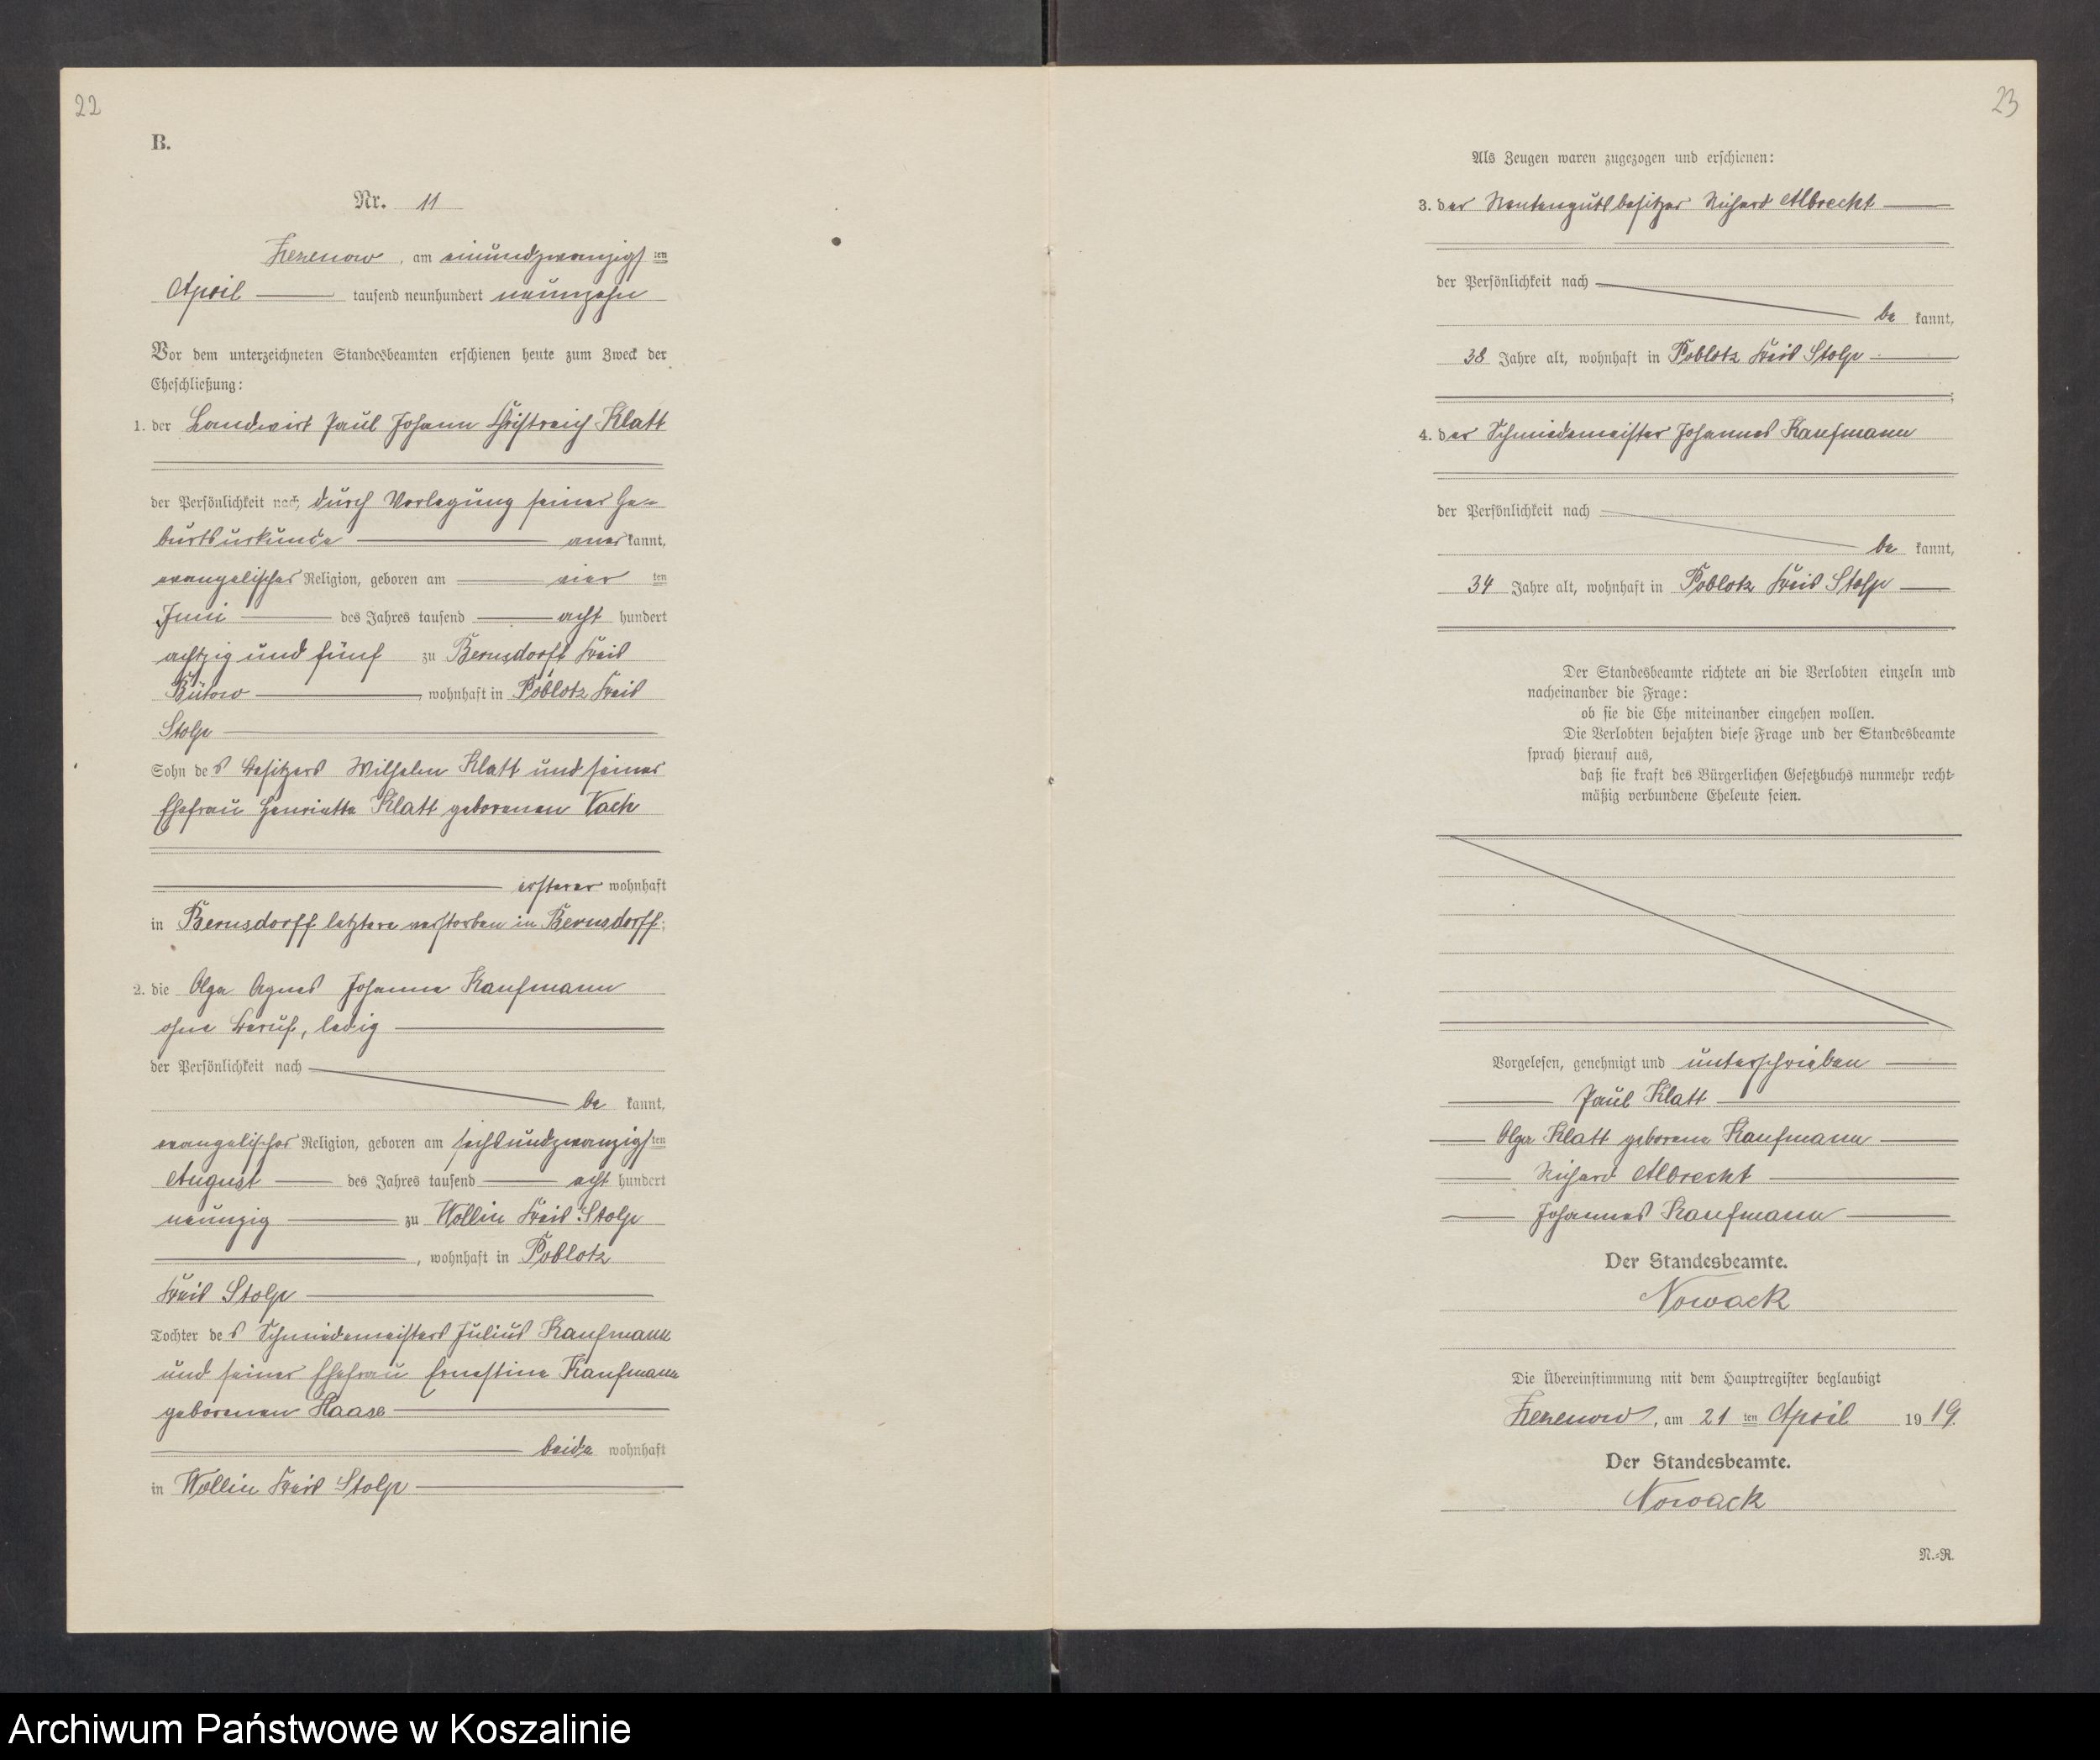 22
B.
Nr. 11
Zezenow, am einundzwanzigsten
April tausend neunhundert neunzehn
Vor dem unterzeichneten Standesbeamten erschienen heute zum Zweck der
Eheschließung:
1. der Landwirt Paul Johann Christreich Klatt
der Persönlichkeit nach durch Vorlegung seiner Ge-
burtsurkunde anerkannt,
evangelischer Religion, geboren am vierten
Juni des Jahres tausend acht hundert
achtzig und fünf zu Bernsdorff Kreis
Bütow, wohnhaft in Poblotz Kreis
Stolp
Sohn des Besitzers Wilhelm Klatt und seiner
Ehefrau Henriette Klatt geborenen
ersterer wohnhaft
in Bernsdorff letztere verstorben in Bernsdorff;
2. die Olga Agnes Johanna Kaufmann
ohne Beruf, ledig
der Persönlichkeit nach
be kannt,
evangelischer Religion, geboren am sechsundzwanzigsten
August des Jahres tausend acht hundert
neunzig zu Wollin Kreis Stolp
, wohnhaft in Poblotz
Kreis Stolp
Tochter des Schmiedemeisters Julius Kaufmann
und seiner Ehefrau Ernestine Kaufmann
geborenen Haase
beide wohnhaft
in Wollin Kreis Stolp
23
Als Zeugen waren zugezogen und erschienen:
3. der Rentengutsbesitzer Richard Albrecht
der Persönlichkeit nach
be kannt,
38 Jahre alt, wohnhaft in Poblotz Kreis Stolp
;
4. der Schmiedemeister Johannes Kaufmann
der Persönlichkeit nach
be kannt,
34 Jahre alt, wohnhaft in Poblotz Kreis Stolp
Der Standesbeamte richtete an die Verlobten einzeln und
nacheinander die Frage:
ob sie die Ehe miteinander eingehen wollen.
Die Verlobten bejahten diese Frage und der Standesbeamte
sprach hierauf aus,
daß sie kraft des Bürgerlichen Gesetzbuchs nunmehr recht-
mäßig verbundene Eheleute seien.
Vorgelesen, genehmigt und unterschrieben
Paul Klatt
Olga Klatt geborene Kaufmann
Richard Albrecht
Johannes Kaufmann
Der Standesbeamte.
Nowack
Die Übereinstimmung mit dem Hauptregister beglaubigt
Zezenow, am 21 ten April 1919.
Der Standesbeamte.
Nowack
N.-R.
Archiwum Państwowe w Koszalinie